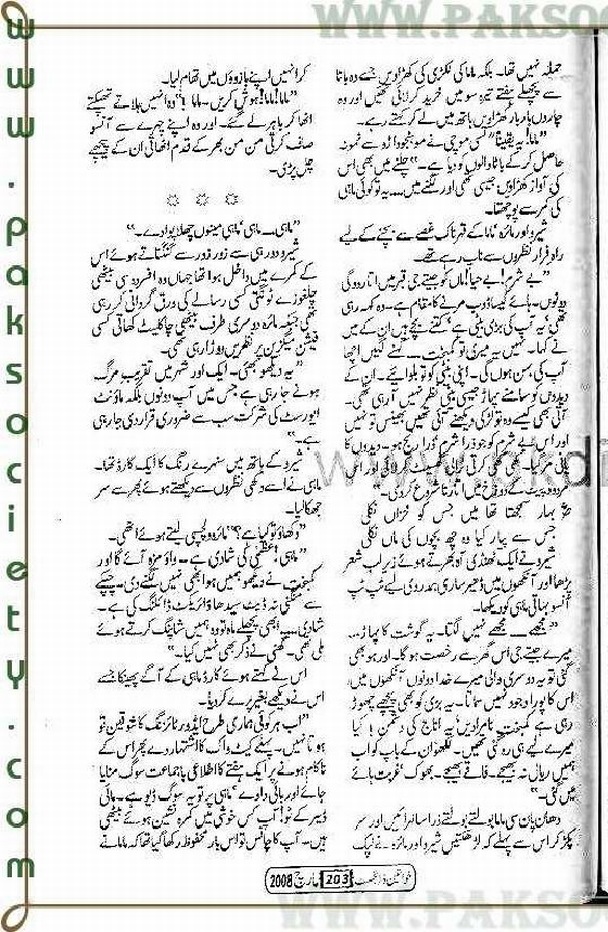 WWW.PAKSO
www.paksociety.com
جملہ نہیں تھا۔ بلکہ ماما کی لکڑی کی کھڑاویں جسے وہ باٹا
سے پچھلے ہفتے تیرہ سو میں خرید کر لائی تھیں اور وہ
چاروں بار بار کھڑاویں ہاتھ میں لے کر کہتے رہے۔
"ماما! یہ یقیناً کسی موچی نے موہنجوداڑو سے نمونہ
حاصل کر کے باٹا والوں کو دیا ہے۔" چلنے میں بھی اس
کی آواز کھڑاؤں جیسی تھی اور لگنے میں... یہ تو کوئی ماہی
کی کمر سے پوچھتا۔
شیرو اور مائرہ، ماما کے قہرناک غصے سے بچنے کے لیے
راہ فرار نظروں سے ناپ رہے تھے۔
"بے شرم! بے حیا! ماں کو جیتے جی قبر میں اتار دو گی
دونوں۔ ہائے کیسا ڈوب مرنے کا مقام ہے۔ وہ کہہ رہی
تھی، یہ آپ کی بڑی بیٹی ہے، کتنے بچے ہیں ان کے میں
نے کہا۔ نہیں یہ میری تو کمبخت... کہنے لگیں اچھا
آپ کی بہن ہوں گی۔ اپنی بیٹی کو تو بلوائیے۔ ان کے
دیدوں کو سامنے پہاڑ جیسی بیٹی نظر نہیں آ رہی تھی۔
آتی بھی کیسے وہ تو لڑکی دیکھنے آئی تھیں بھینس تو نہیں
اور اس بے شرم کو جو ذرا شرم کو راج ہو۔ دیدوں کا
پانی مر گیا۔ بھی بھی کرتی ٹرالی گھسیٹ کر لائی اور اس
مردود پیٹ کے دوزخ میں اتارنا شروع کر دی۔
بہار سمجھتا تھا میں جس کو خزاں نکلی
جس سے پیار کیا وہ چھ بچوں کی ماں نکلی
شیرو نے ایک ٹھنڈی آہ بھرتے ہوئے زیر لب شعر
پڑھا اور آنکھوں میں ڈھیر ساری ہمدردی لیے ٹپ ٹپ
آنسو بہاتی ماہی کو دیکھا۔
"مجھے... مجھے نہیں لگتا۔ یہ گوشت کا پہاڑ...
میرے جیتے جی اس گھر سے رخصت ہو گا۔ اور ہو بھی
گئی تو یہ دوسری والی میرے خدا دونوں آنکھوں میں
اس کا پورا وجود نہیں سماتا۔ یہ بڑی کو بھی پیچھے چھوڑ
رہی ہے کمبخت نامرادیں یہ اناج کی دشمن بلائیں
میرے لیے ہی رہ گئی تھیں۔ لکھو ان کے باپ کو اب
ہمیں ریال نہ بھیجے۔ فاقے بھیجے۔ بھوک، غربت ہائے
میں لٹ گئی۔"
دھان پان سی ماما بولتے بولتے ذرا سا لہرائیں اور سر
پکڑ کر اس سے پہلے کہ لڑھکتیں شیرو اور مائرہ نے لپک
کر انہیں اپنے بازوؤں میں تھام لیا۔
"ماما! ماما! ہوش کریں۔ ماما!" وہ انہیں ہلاتے تھپکتے
اٹھا کر باہر لے گئے۔ اور وہ اپنے چہرے سے آنسو
صاف کرتی من من بھر کے قدم اٹھاتی ان کے پیچھے
چل پڑی۔
☼ ☼ ☼
"ماہی... ماہی، ماہی مینوں چھلا پوا دے۔"
شیرو دور ہی سے زور زور سے گنگناتے ہوئے اس
کے کمرے میں داخل ہوا تھا جہاں وہ افسردہ سی بیٹھی
چلغوزے ٹونگتی کسی رسالے کی ورق گردانی کر رہی
تھی جبکہ مائرہ دوسری طرف بیٹھی چاکلیٹ کھاتی کسی
فیشن میگزین پر نظریں دوڑا رہی تھی۔
"یہ دیکھو بھئی۔ ایک اور شہر میں تقریب مرگ
ہونے جا رہی ہے جس میں آپ دونوں بلکہ ماؤنٹ
ایورسٹ کی شرکت سب سے ضروری قرار دی جا رہی
ہے۔"
شیرو کے ہاتھ میں سنہرے رنگ کا ایک کارڈ تھا۔
ماہی نے اسے دکھی نظروں سے دیکھتے ہوئے پھر سے سر
جھکا لیا۔
"دکھاؤ تو کیا ہے؟" مائرہ دلچسپی لیتے ہوئے اٹھی۔
"ماہی! عظمیٰ کی شادی ہے... واؤ مزہ آئے گا اور
کمبخت نے دیکھو ہمیں ہوا بھی نہیں لگنے دی۔ چپکے
سے منگنی نہ ڈیٹ سیدھا ڈائریکٹ ڈائلنگ کی ہے۔
شادی... ابھی پچھلے ماہ تو وہ ہمیں شاپنگ کرتے ہوئے
ملی تھی۔ گھنی نے ذکر بھی نہیں کیا۔"
اس نے کہتے ہوئے کارڈ ماہی کے آگے پھینکا جسے
اس نے دیکھے بغیر پرے کر دیا۔
"اب ہر کوئی ہماری طرح ایڈورٹائزنگ کا شوقین تو
ہوتا نہیں۔ پہلے کیٹ واک کا اشتہار دے پھر اس کے
ناکام ہونے پر ایک ہفتے کا اطلاعی باجماعت سوگ منایا
جائے اور بائی دا وے، ماہی پر تو یہ سوگ ڈیو ہے۔ مائی
ڈیئر کے تو! آپ کس خوشی میں کمرہ نشین ہوئے بیٹھی
ہیں۔ آپ کا چانس تو اس بار محفوظ رکھا گیا تھا کہ ماما نے
خواتین ڈائجسٹ 203 مارچ 2008
WWW.PAKSO